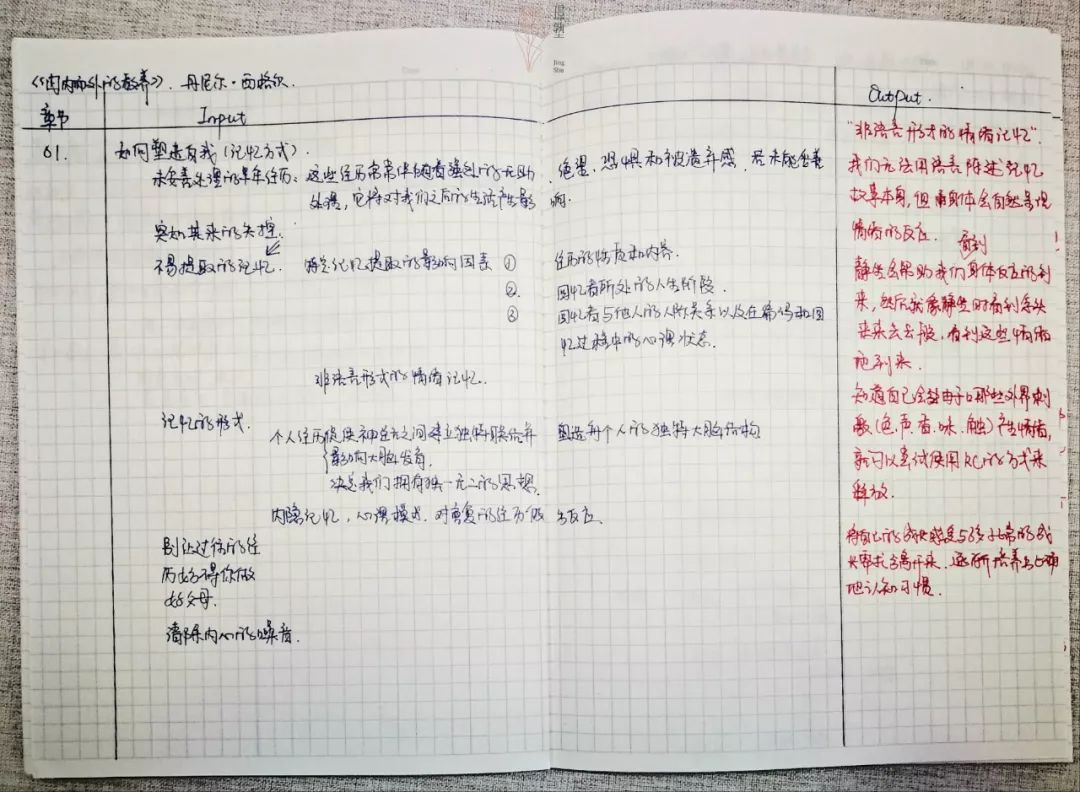 《由内而外的教养》. 丹尼尔·西格尔.
章节 Input Output.
01. 如何塑造自我(记忆方式).
未妥善处理的早年经历: 这些经历常常伴随着强烈的无助、绝望、恐惧和被遗弃感, 若未能妥善
处理, 它将对我们之后的生活产生影响.
突如其来的失控.
不易提取的记忆. 特定记忆提取的影响因素 ① 经历的性质和内容.
② 回忆者所处的人生阶段.
③ 回忆者与他人的人际关系以及在编码和回
忆过程中的心理状态.
非语言形式的情绪记忆.
记忆的形式. 个人经历促使神经元之间建立独特联结并 塑造每个人的独特大脑结构
影响大脑发育.
决定我们拥有独一无二的思想.
内隐记忆, 心理模式. 对重复的经历做出反应.
别让过往的经
历妨碍你做
好父母.
清除内心的噪音.
"非语言形式的情绪记忆".
我们无法用语言陈述记忆
故事本身, 但身体会自然呈现
情绪的反应.
看到
静坐会帮助我们身体反应的到
来, 然后就像静坐时看到念头
来来去去一般, 看到这些情绪
地到来.
知道自己会由于哪些外界刺
激(色.声.香.味.触)产生情绪,
就可以尝试使用RC的方式来
释放.
将自己的成长感受与孩子的成
长需求分离开来. 逐渐培养出正确
地认知习惯.
型
Jing
She